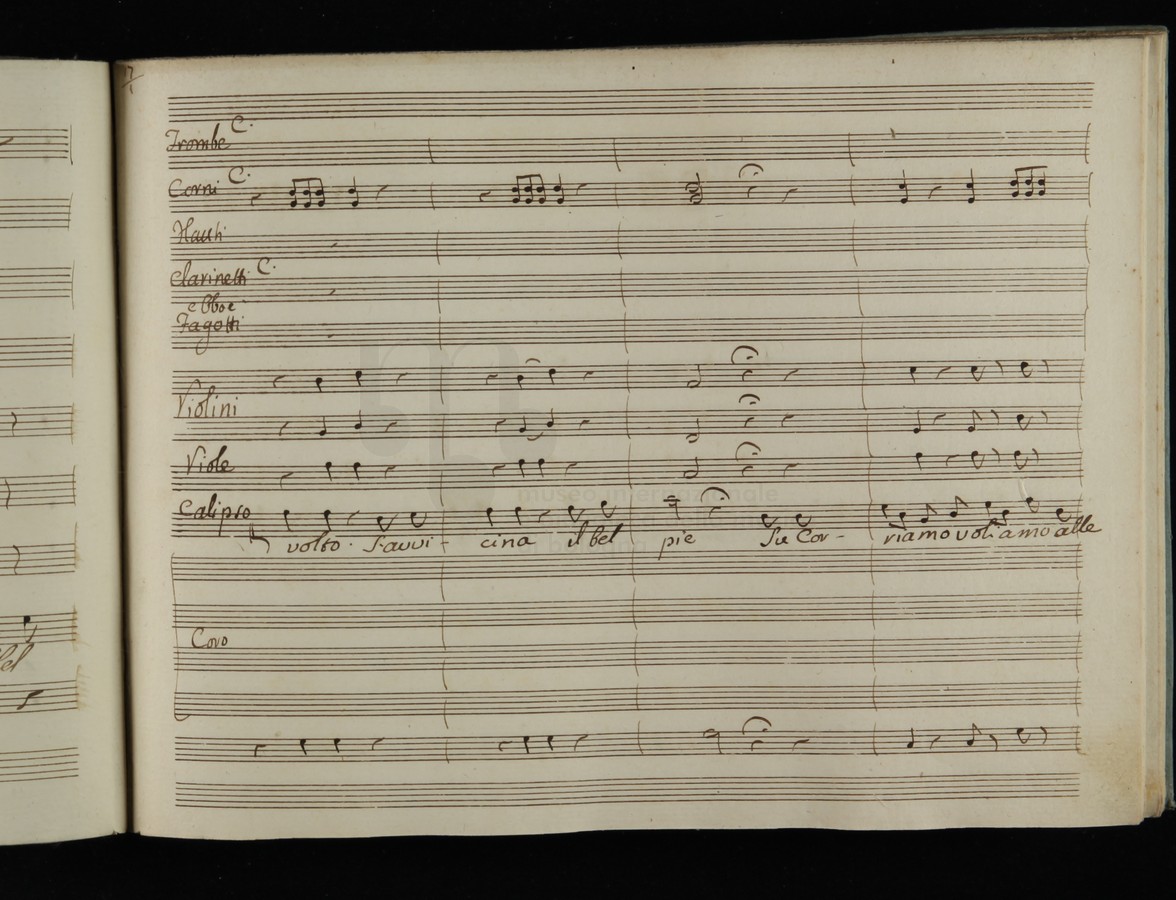 Trombe C.
Corni C.
Flauti
Clarinetti C.
e Oboe
Fagotti
Violini
Viole
Calipso
volto. S'avvi- cina il bel pie Su Cor- riamo voliamo alle
Coro
museo internazionale